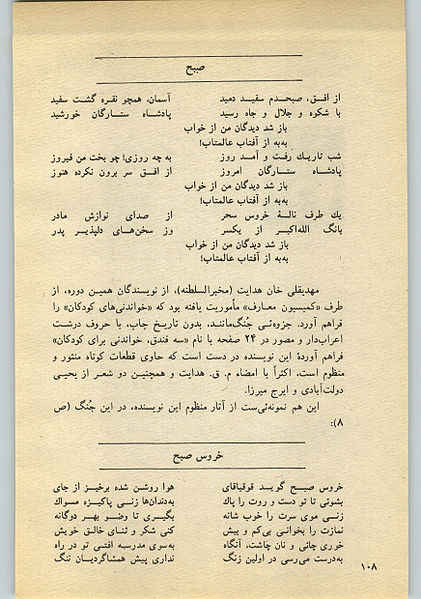 صبح
از افق، صبحدم سفید دمید آسمان، همچو نقره گشت سفید
با شکوه و جلال و جاه رسید پادشاه ستارگان خورشید
باز شد دیدگان من از خواب
به‌به از آفتاب عالمتاب!
شب تاریك رفت و آمد روز به چه روزی! چو بخت من فیروز
پادشاه ستارگان امروز از افق سر برون نکرده هنوز
باز شد دیدگان من از خواب
به‌به از آفتاب عالمتاب!
یك طرف نالهٔ خروس سحر از صدای نوازش مادر
بانگ الله‌اکبر از یکسر وز سخن‌های دلپذیر پدر
باز شد دیدگان من از خواب
به‌به از آفتاب عالمتاب!
مهدیقلی خان هدایت (مخبرالسلطنه)، از نویسندگان همین دوره، از
طرف «کمیسیون معارف» مأموریت یافته بود که «خواندنی‌های کودکان» را
فراهم آورد. جزوه‌ئی جُنگ‌مانند، بدون تاریخ چاپ، با حروف درشت
اعراب‌دار و مصور در ۲۴ صفحه با نام «سه فندق، خواندنی برای کودکان»
فراهم آوردهٔ این نویسنده در دست است که حاوی قطعات کوتاه منثور و
منظوم است، اکثراً با امضاء م. ق. هدایت و همچنین دو شعر از یحیی
دولت‌آبادی و ایرج میرزا.
این هم نمونه‌ئی‌ست از آثار منظوم این نویسنده، در این جُنگ (ص
۸):
خروس صبح
خروس صبح گوید قوقباقای هوا روشن شده برخیز از جای
بشوئی تا تو دست و روت را پاك به‌دندان‌ها زنی پاکیزه مسواك
زنی موی سرت را خوب شانه بگیری تا وضو بهر دوگانه
نمازت را بخوانی بی‌کم و بیش کنی شکر و ثنای خالق خویش
خوری چائی و نان چاشت، آنگاه به‌سوی مدرسه افتی تو در راه
به‌درست می‌رسی در اولین زنگ نداری پیش همشاگردیان ننگ
۱۰۸